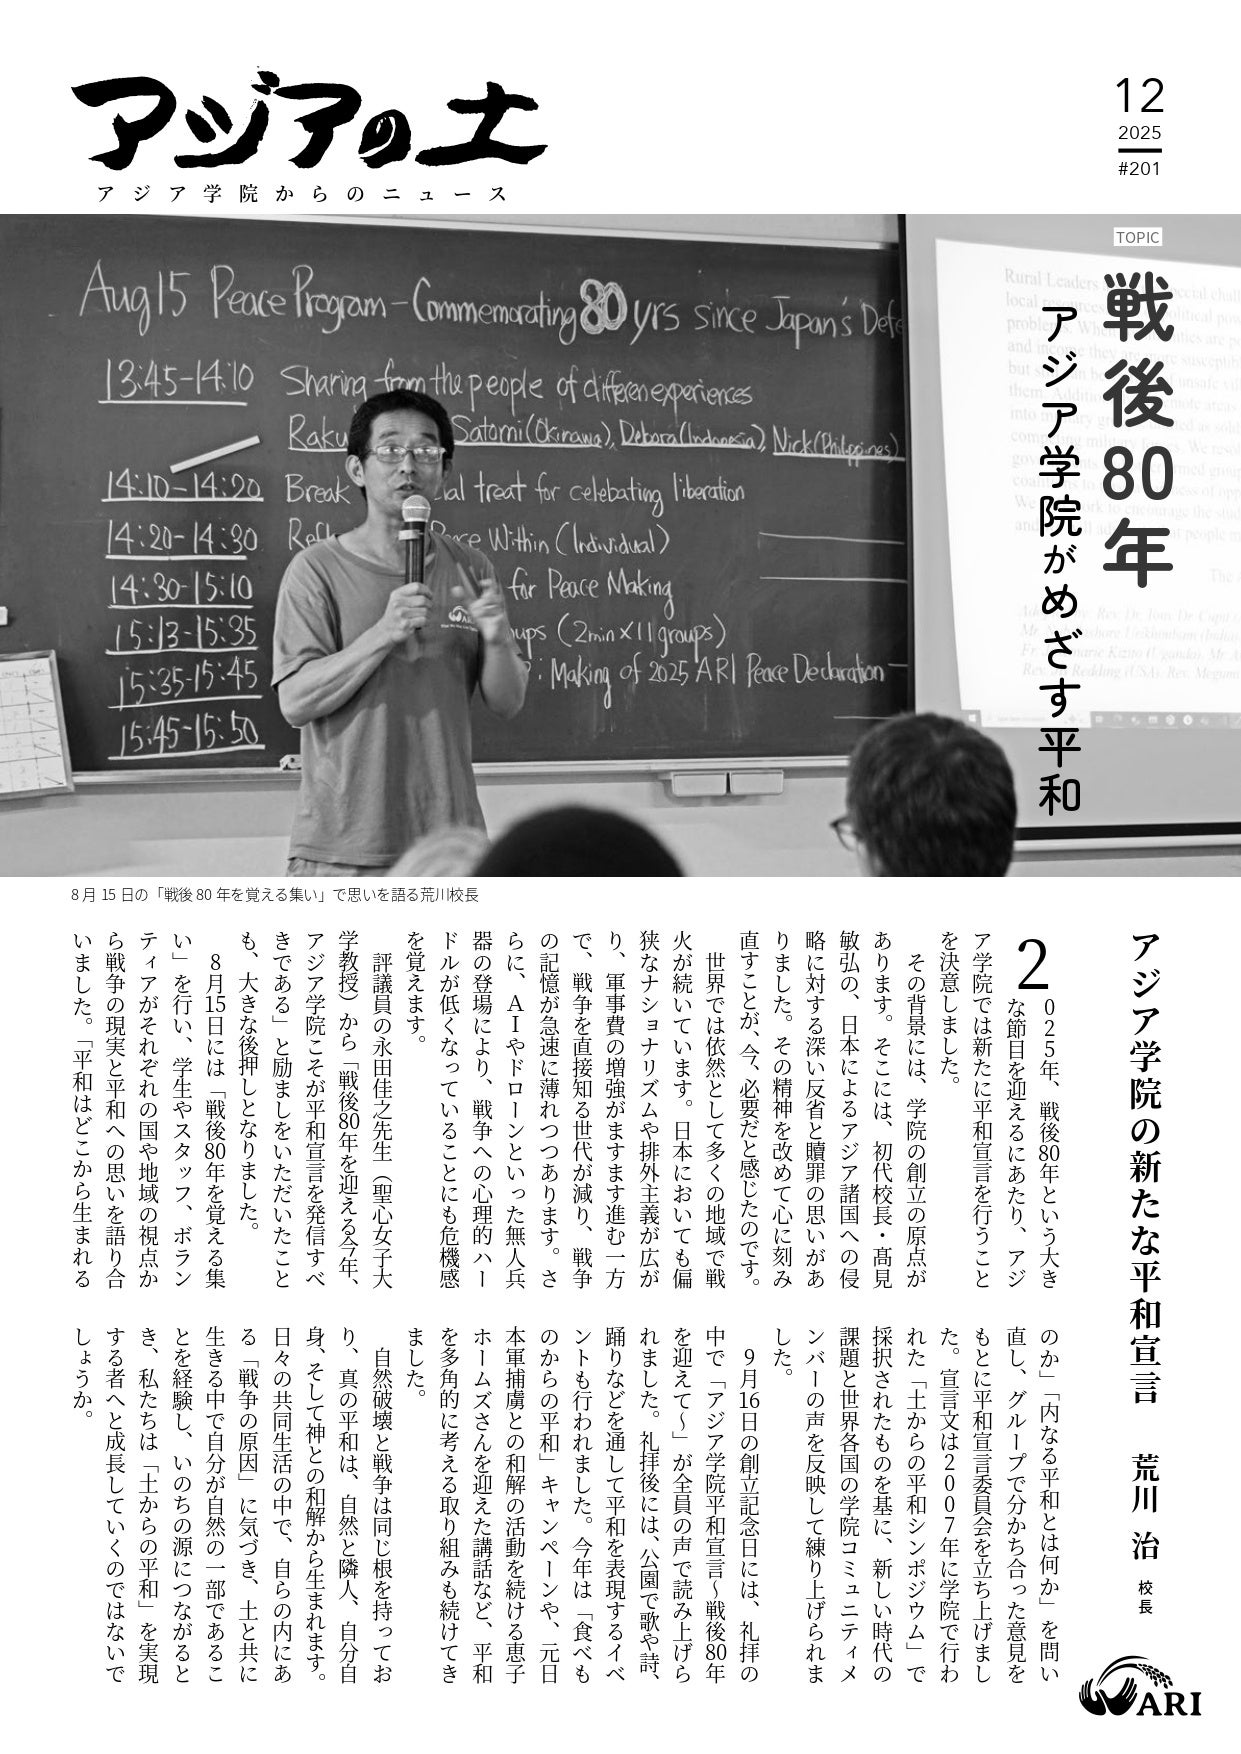 アジアの土
アジア学院からのニュース
12
2025
#201
TOPIC
戦後80年
アジア学院がめざす平和
Aug 15 Peace Program - Commemorating 80 yrs since Japan's Defe
13:45-14:10 Sharing from the people of differen experiences
Raku Satomi (Okinawa), Debora (Indonesia), Nick (Philippines)
14:10-14:20 Break al treat for celebating liberation
14:20-14:30 Refl ce Within (Individual)
14:30-15:10 for Peace Making
15:13-15:35 ups (2min×11groups)
15:35-15:45 : Making of 2025 ARI Peace Declaration
15:45-15:50
Rural Leaders
local resources
and income they are more susceptib
8月15日の「戦後80年を覚える集い」で思いを語る荒川校長
アジア学院の新たな平和宣言 荒川 治 校長
2025年、戦後80年という大き
な節目を迎えるにあたり、アジ
ア学院では新たに平和宣言を行うこと
を決意しました。
その背景には、学院の創立の原点が
あります。そこには、初代校長・髙見
敏弘の、日本によるアジア諸国への侵
略に対する深い反省と贖罪の思いがあ
りました。その精神を改めて心に刻み
直すことが、今、必要だと感じたのです。
世界では依然として多くの地域で戦
火が続いています。日本においても偏
狭なナショナリズムや排外主義が広が
り、軍事費の増強がますます進む一方
で、戦争を直接知る世代が減り、戦争
の記憶が急速に薄れつつあります。さ
らに、AIやドローンといった無人兵
器の登場により、戦争への心理的ハー
ドルが低くなっていることにも危機感
を覚えます。
評議員の永田佳之先生（聖心女子大
学教授）から「戦後80年を迎える今年、
アジア学院こそが平和宣言を発信すべ
きである」と励ましをいただいたこと
も、大きな後押しとなりました。
8月15日には「戦後80年を覚える集
い」を行い、学生やスタッフ、ボラン
ティアがそれぞれの国や地域の視点か
ら戦争の現実と平和への思いを語り合
いました。「平和はどこから生まれる
のか」「内なる平和とは何か」を問い
直し、グループで分かち合った意見を
もとに平和宣言委員会を立ち上げまし
た。宣言文は2007年に学院で行わ
れた「土からの平和シンポジウム」で
採択されたものを基に、新しい時代の
課題と世界各国の学院コミュニティメ
ンバーの声を反映して練り上げられま
した。
9月16日の創立記念日には、礼拝の
中で「アジア学院平和宣言～戦後80年
を迎えて～」が全員の声で読み上げら
れました。礼拝後には、公園で歌や詩、
踊りなどを通して平和を表現するイベ
ントも行われました。今年は「食べも
のからの平和」キャンペーンや、元日
本軍捕虜との和解の活動を続ける恵子
ホームズさんを迎えた講話など、平和
を多角的に考える取り組みも続けてき
ました。
自然破壊と戦争は同じ根を持ってお
り、真の平和は、自然と隣人、自分自
身、そして神との和解から生まれます。
日々の共同生活の中で、自らの内にあ
る「戦争の原因」に気づき、土と共に
生きる中で自分が自然の一部であるこ
とを経験し、いのちの源につながると
き、私たちは「土からの平和」を実現
する者へと成長していくのではないで
しょうか。
ARI